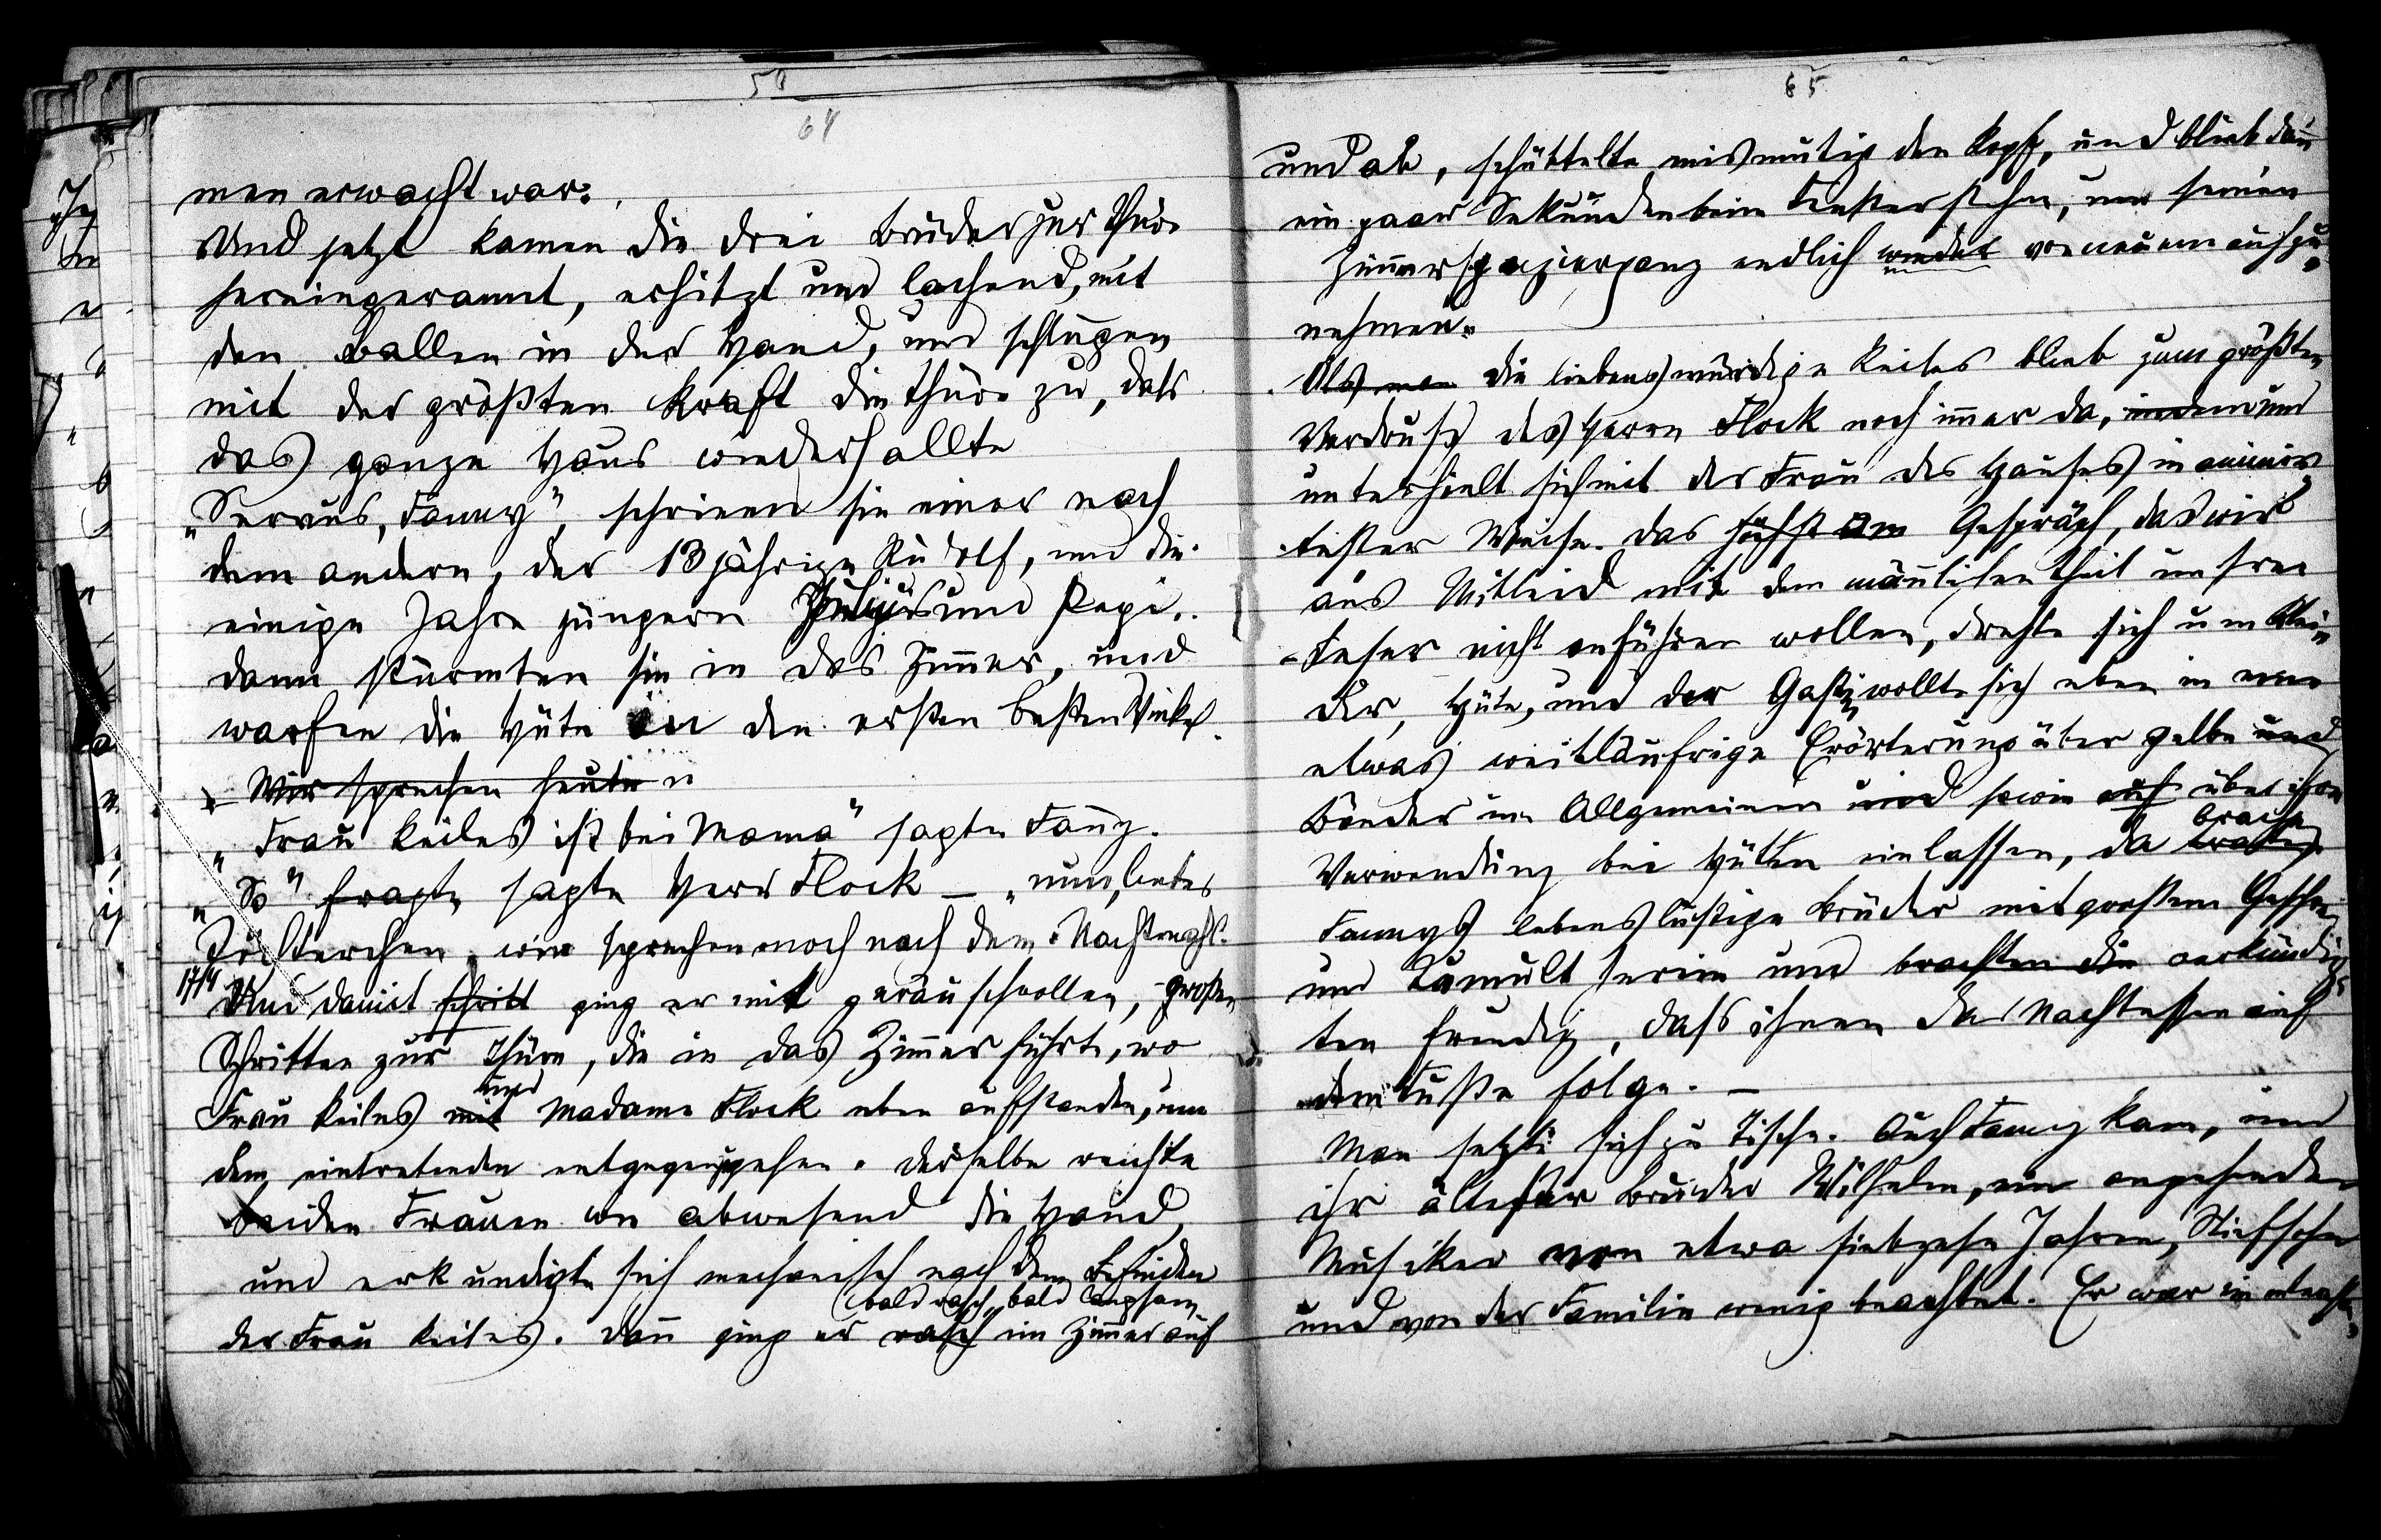 58
64
men erwacht war.
Und jetzt kamen die drei Brüder zur Thüre
hereingerannt, erhitzt und lachend, mit
den Ballen in der Hand, und schlugen
mit der größten Kraft die Thüre zu, dass
das ganze Haus wiederhallte
„Servus, Fanny“, schrieen sie einer nach
dem andern, der 13 jährige Rudolf, und die
einige Jahre jüngern Julius und Pepi.
dann stürmten sie in das Zimmer, und
warfen die Hüte in den ersten besten Winkel.
Wir sprechen heute
„Frau Keiles ist bei Mama“ sagte Fanny.
„So“ fragte sagte Herr Flock – „nun, liebes
Töchterchen, wir sprechen noch nach dem Nachtmahl.
17/4 Und damit schritt ging er mit geräuschvollen, großen
Schritten zur Thüre, die in das Zimmer führte, wo
und
Frau Keiles mit Madame Flock eben aufstanden, um
dem eintretenden entgegenzugehen. Derselbe reichte
beiden Frauen wie abwesend die Hand,
und erkundigte sich mechanisch nach dem Befinden
bald rasch, bald langsam
der Frau Keiles. Dann ging er rasch im Zimmer auf
65
und ab, schüttelte mismutig den Kopf, und blieb dann
ein paar Sekunden beim Fenster stehn, um seinen
Zimmerspaziergang endlich wieder von neuem aufzu-
nehmen.
Als man die liebenswürdige Keiles blieb zum größten
Verdruß des Herrn Flock noch immer da, indem und
unterhielt sich mit der Frau des Hauses in animir-
tester Weise. Das Gespräch, das wir
aus Mitleid mit dem männlichen Theil unsrer
Leser nicht anführen wollen, drehte sich um Klei-
der, Hüte, und der Gast wollte sich eben in eine
etwas weitläufige Erörterung über gelbe und
Bänder im Allgemeinen und sowie auf über ihre
brachen
Verwendung bei Hüten einlassen, da traten
Fannys lebenslustige Brüder mit großem Geschrei
und Tumult herein und brachten die verkündig-
ten freudig, dass ihnen das Nachtessen auf
dem Fuße folge. –
Man setzte sich zu Tische. Auch Fanny kam, und
ihr ältester Bruder Wilhelm, ein angehender
Musiker von etwa siebzehn Jahren, Stiefsohn
und von der Familie wenig beachtet. Er war in